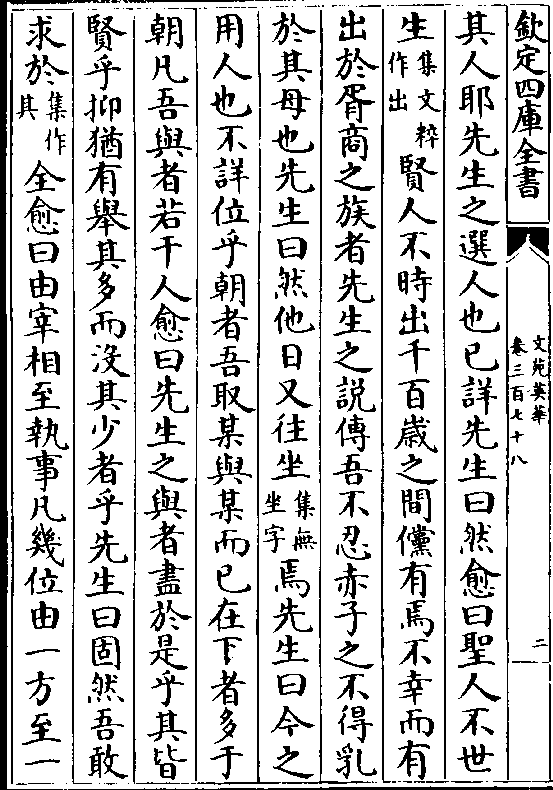 欽定四庫全書
文苑英華
卷三百七十八
二
其人耶先生之選人也已詳先生曰然愈曰聖人不世
生集文粹作出賢人不時出千百歲之間儻有焉不幸而有
出於胥商之族者先生之說傳吾不忍赤子之不得乳
於其母也先生曰然他日又往坐集無坐字焉先生曰今之
用人也不詳位乎朝者吾取某與某而已在下者多于
朝凡吾與者若干人愈曰先生之與者盡於是乎其皆
賢乎抑猶有舉其多而沒其少者乎先生曰固然吾敢
求於集作其全愈曰由宰相至執事凡幾位由一方至一